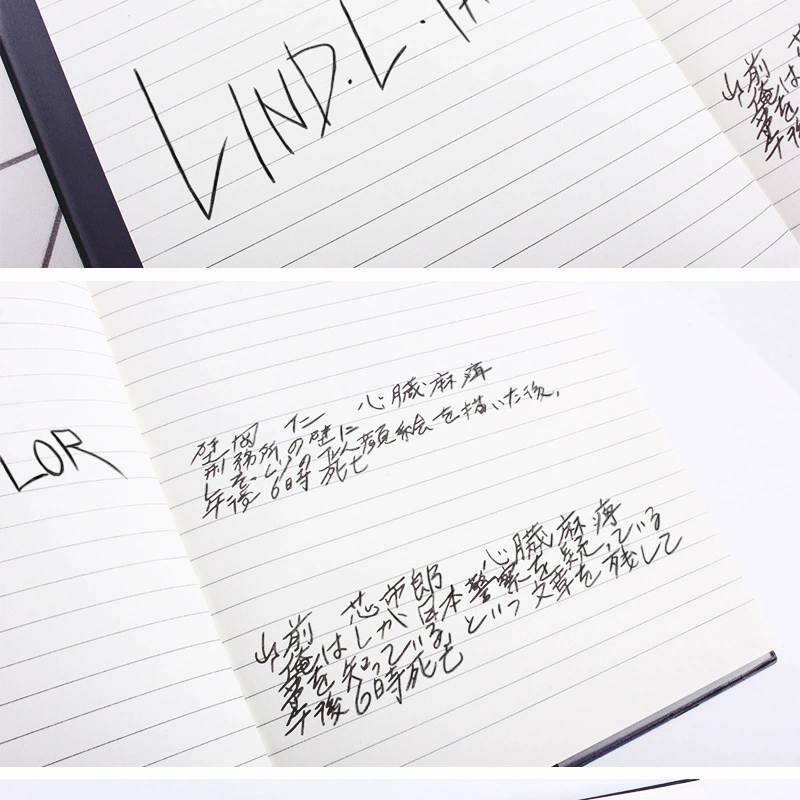 LIND.L.TA
前
俺は
を
午後
LOR
仁 心臓麻痺
刑務所のトイレの壁に
似顔絵を描いた後、
午後6時死亡
山前 芯市郎 心臓麻痺
俺はしか日本警察を疑っている
事を知っている、という文章を残して
午後6時死亡